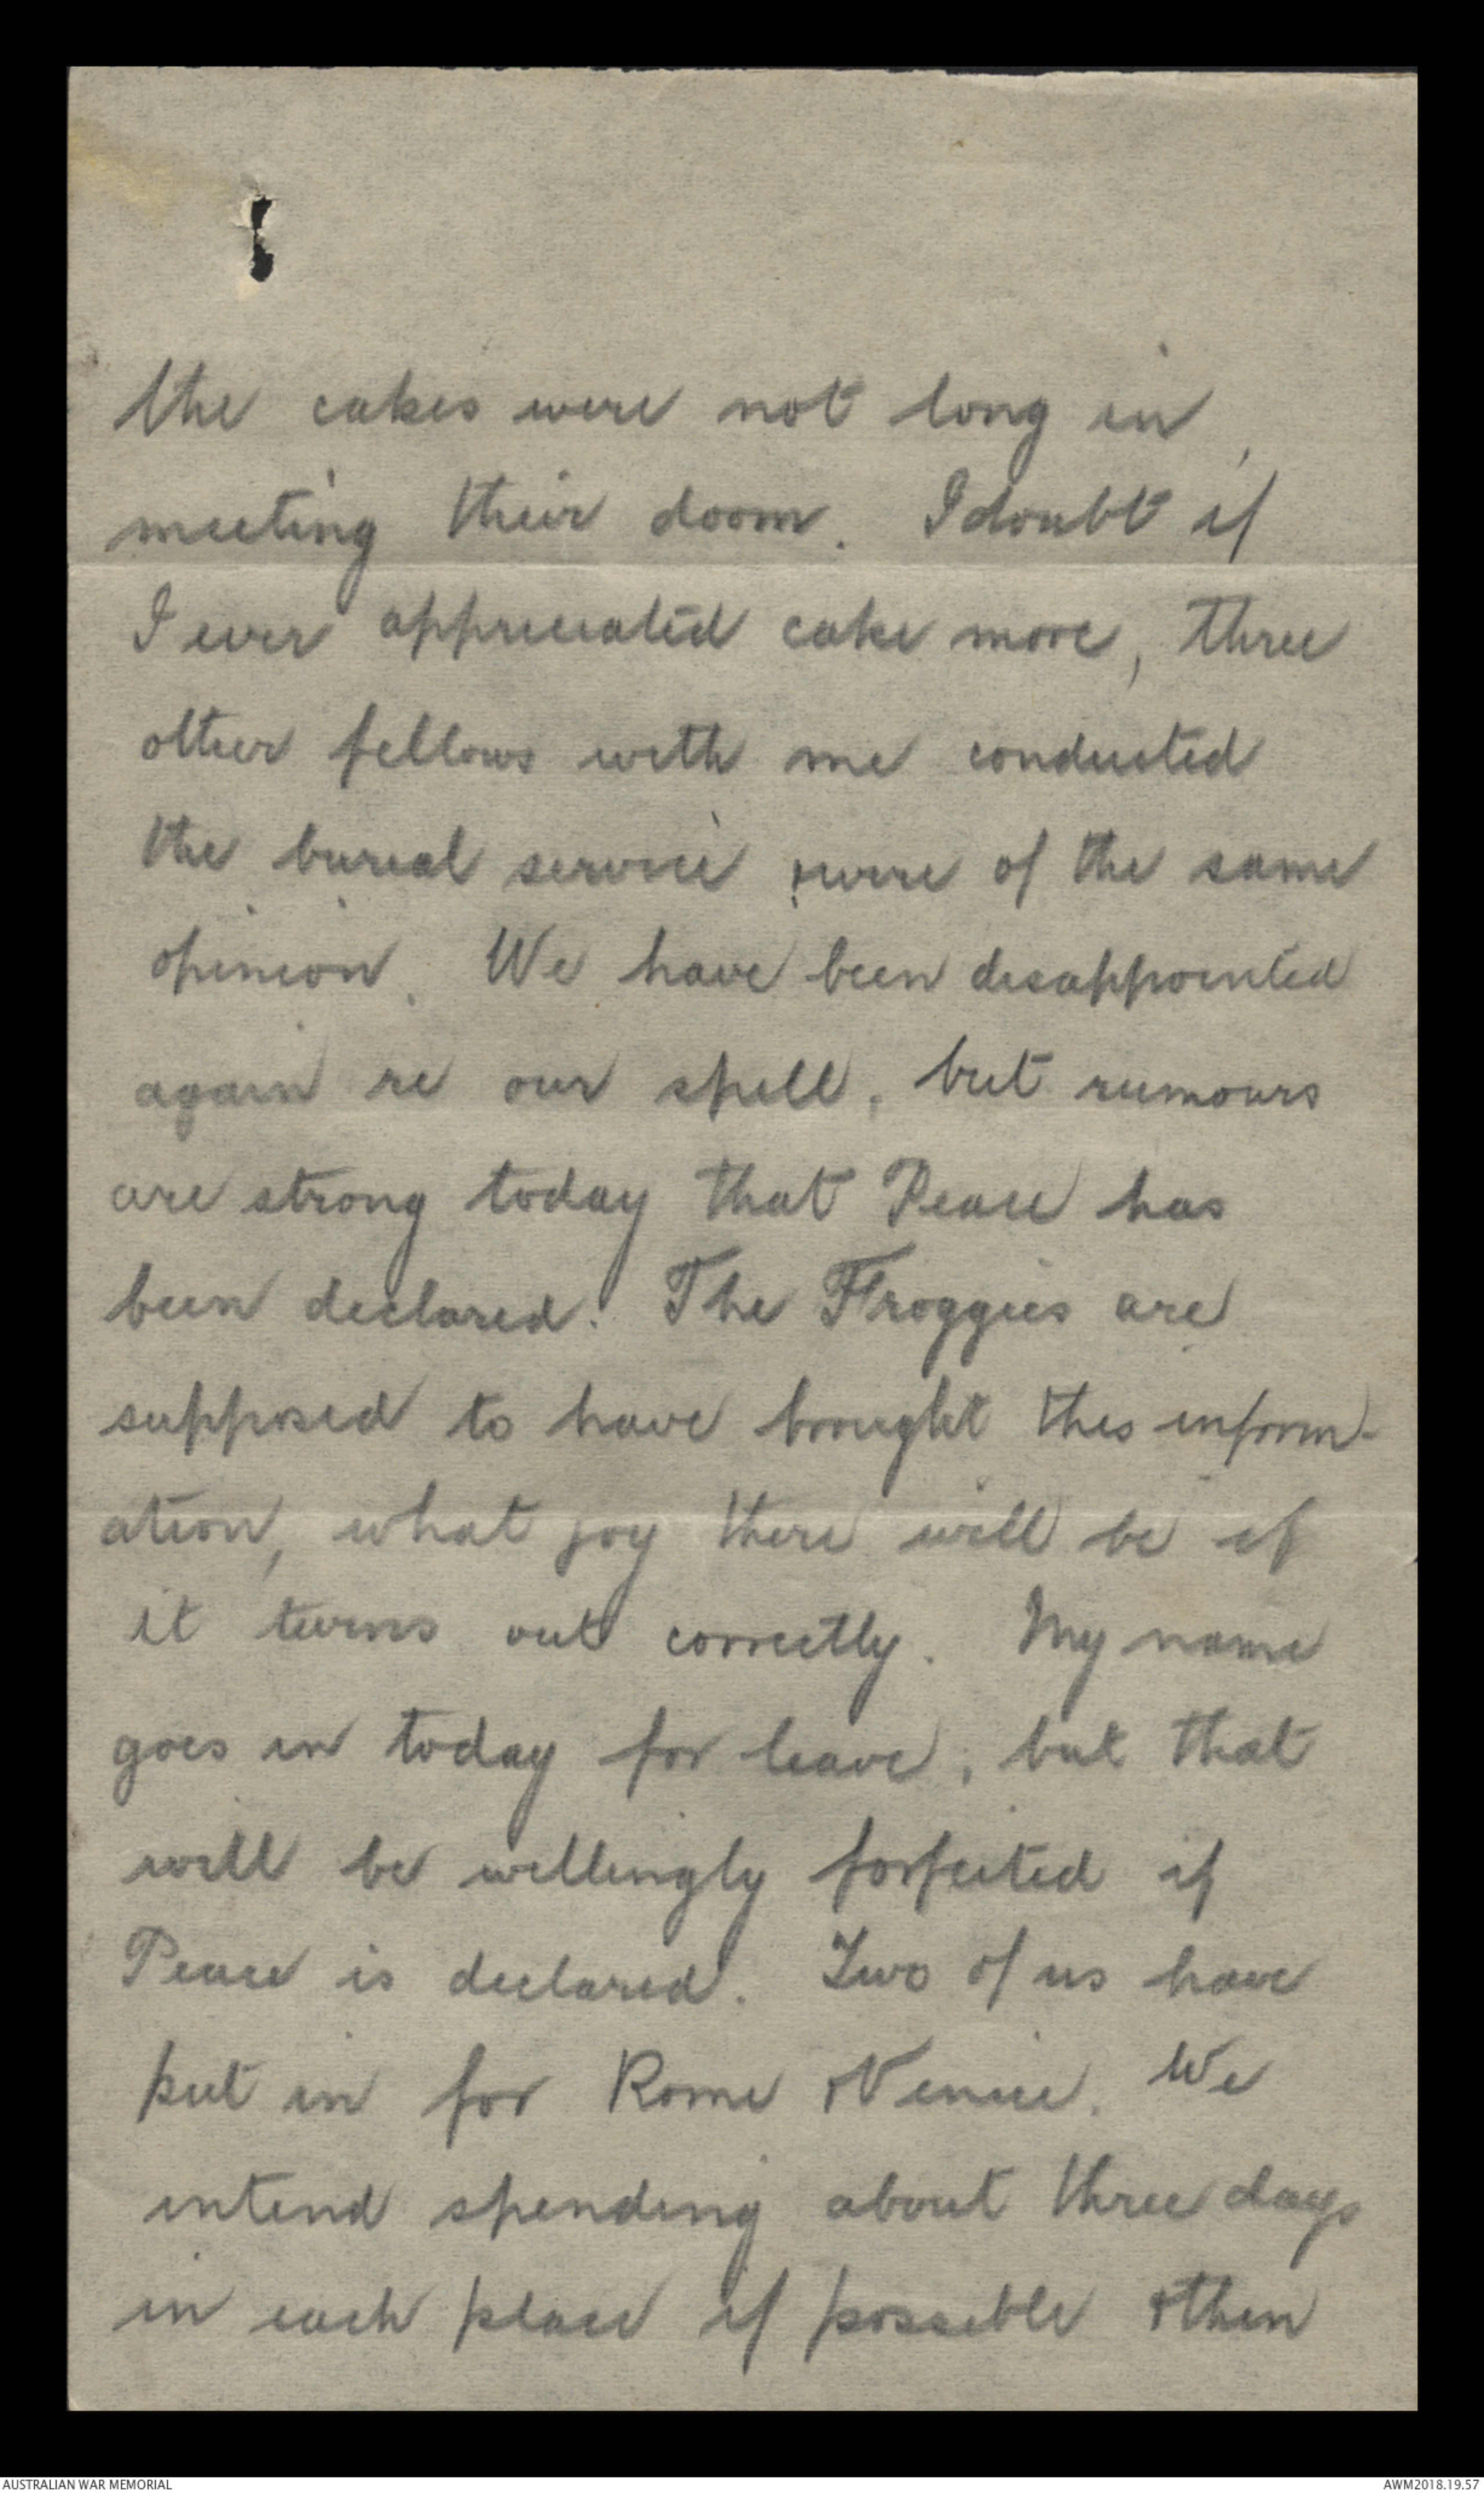 the cakes were not long in
meeting their doom. I doubt if
I ever appreciated cake more, three
other fellows with me conducted
the burial service & were of the same
opinion. We have been disappointed
again re our spell, but rumours
are strong today that Peace has
been declared. The Froggies are
supposed to have brought this inform-
ation, what joy there will be if
it turns out correctly. My name
goes in today for leave, but that
will be willingly forfeited if
Peace is declared. Two of us have
put in for Rome & Venice. We
intend spending about three days
in each place if possible & then
AUSTRALIAN WAR MEMORIAL
AWM2018.19.57